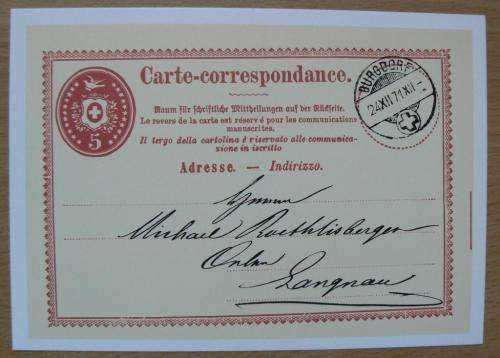 Carte-correspondance.
BURGDORF
24 XII 71 XII
5
Raum für schriftliche Mittheilungen auf der Rückseite.
Le revers de la carte est réservé pour les communications
manuscrites.
Il tergo della cartolina è riservato alle communica-
zione in iscritto
Adresse. — Indirizzo.
Michael Roethlisberger
Langnau